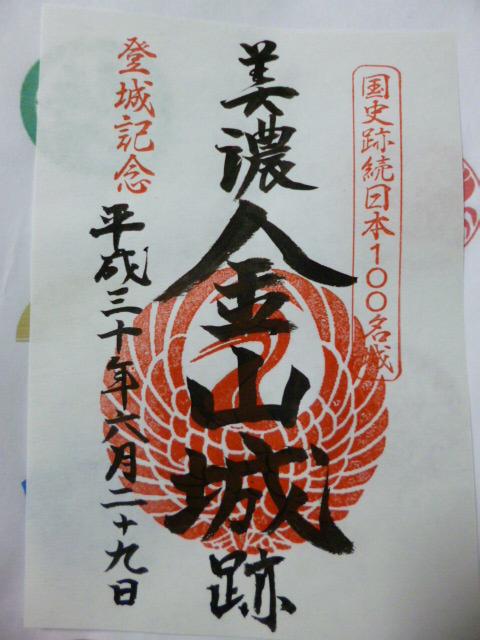 国史跡続日本100名城
美濃金山城跡
登城記念
平成三十年六月二十九日